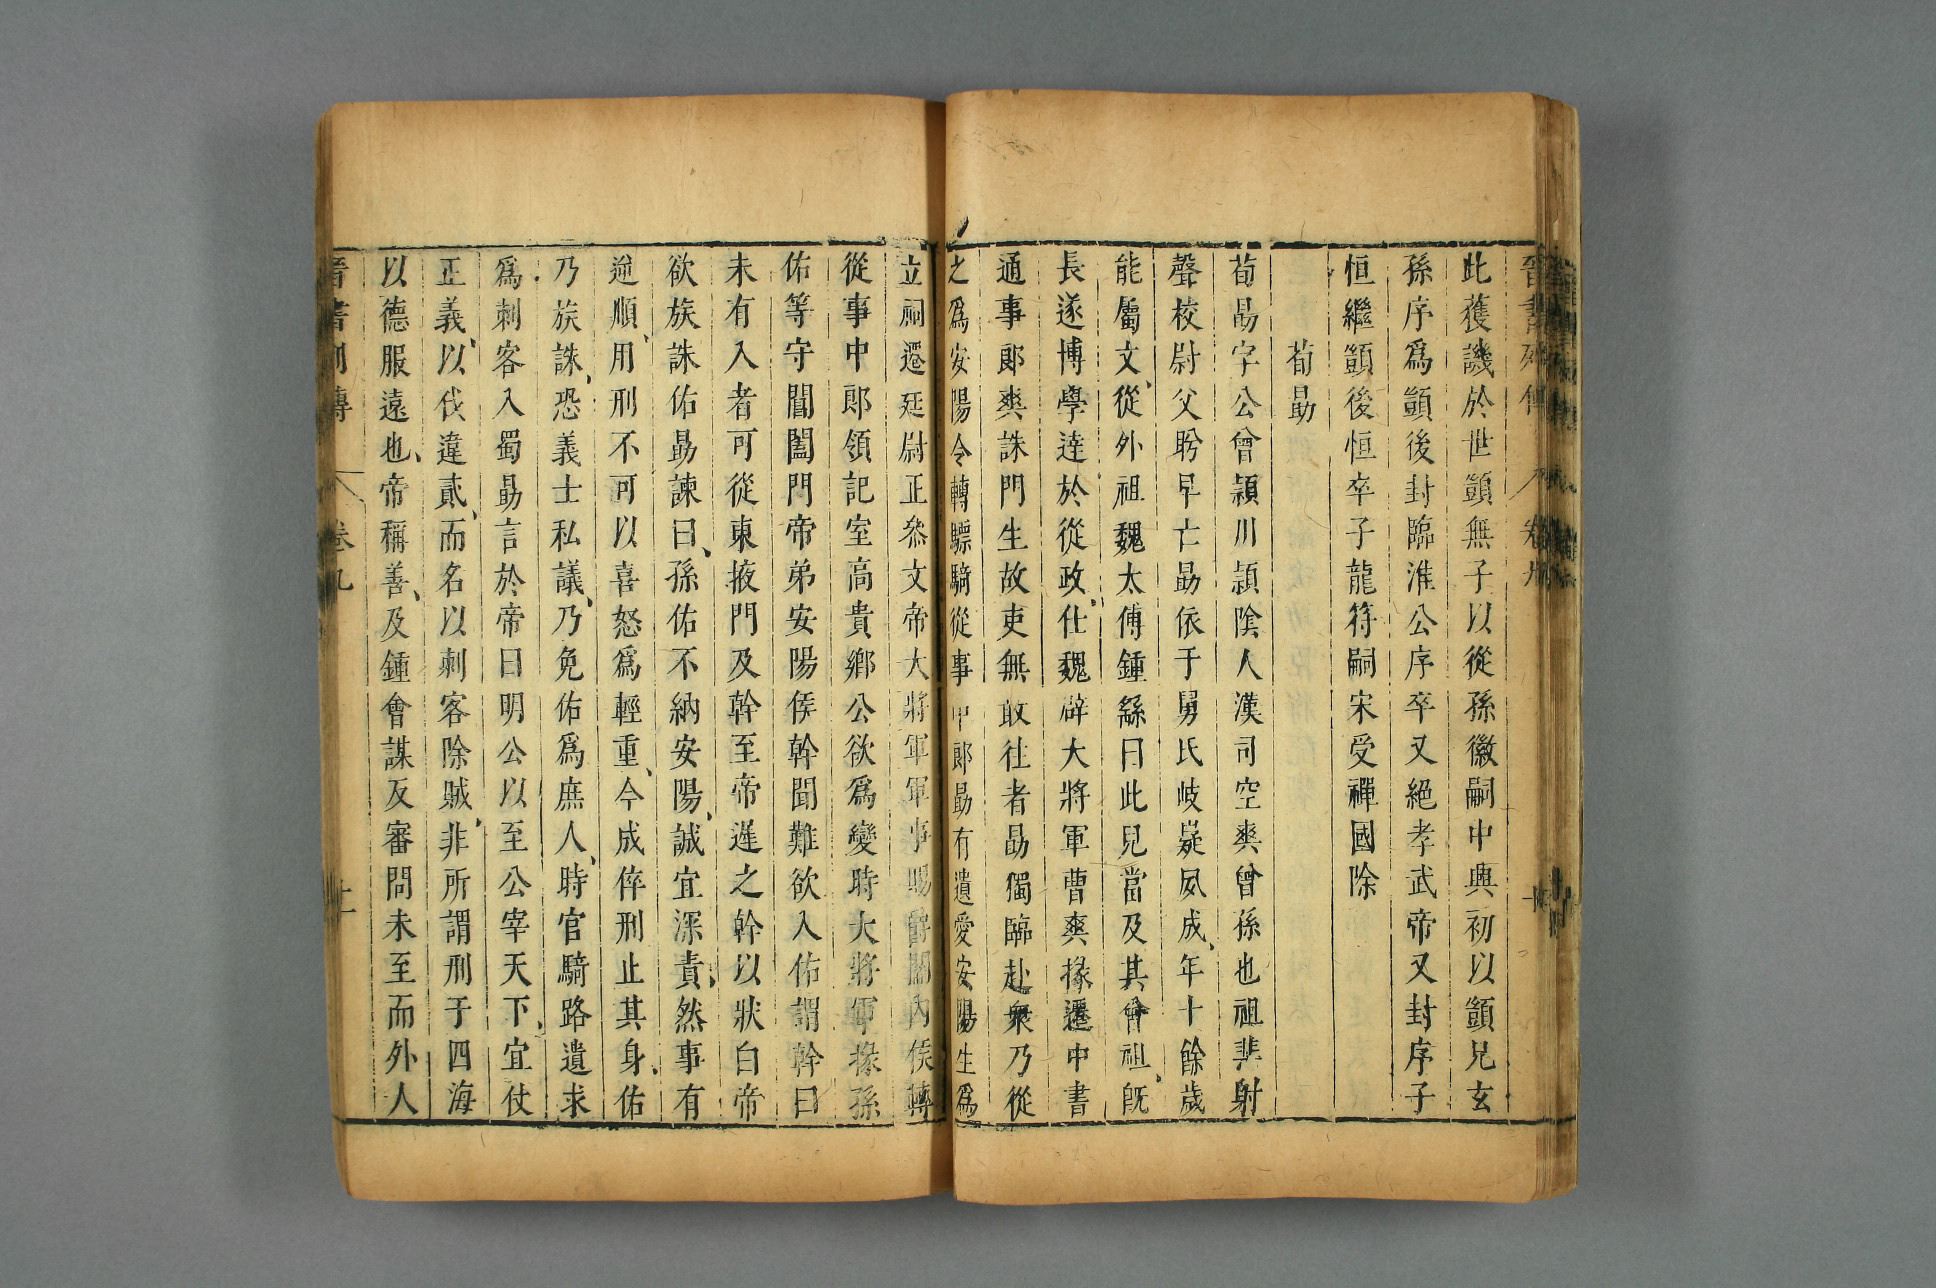 晉書列傳 卷九
此獲譏於世顗無子以從孫徽嗣中興初以顗兄玄
孫序爲顗後封臨淮公序卒又絕孝武帝又封序子
恒繼顗後恒卒子龍符嗣宋受禪國除
荀勗
荀勗字公曾潁川潁陰人漢司空爽曾孫也祖棐射
聲校尉父肸早亡勗依于舅氏岐嶷夙成年十餘歲
能屬文從外祖魏太傅鍾繇曰此兒當及其曾祖旣
長遂博學達於從政仕魏辟大將軍曹爽掾遷中書
通事郎爽誅門生故吏無敢往者勗獨臨赴衆乃從
之爲安陽令轉驃騎從事中郎勗有遺愛安陽生爲
立祠遷廷尉正參文帝大將軍軍事賜爵關內侯轉
從事中郎領記室高貴鄉公欲爲變時大將軍掾孫
佑等守閶闔門帝弟安陽侯幹聞難欲入佑謂幹曰
未有入者可從東掖門及幹至帝遲之幹以狀白帝
欲族誅佑勗諫曰孫佑不納安陽誠宜深責然事有
逆順用刑不可以喜怒爲輕重今成倅刑止其身佑
乃族誅恐義士私議乃免佑爲庶人時官騎路遺求
爲刺客入蜀勗言於帝曰明公以至公宰天下宜仗
正義以伐違貳而名以刺客除賊非所謂刑于四海
以德服遠也帝稱善及鍾會謀反審問未至而外人
晉書列傳 卷九 十一